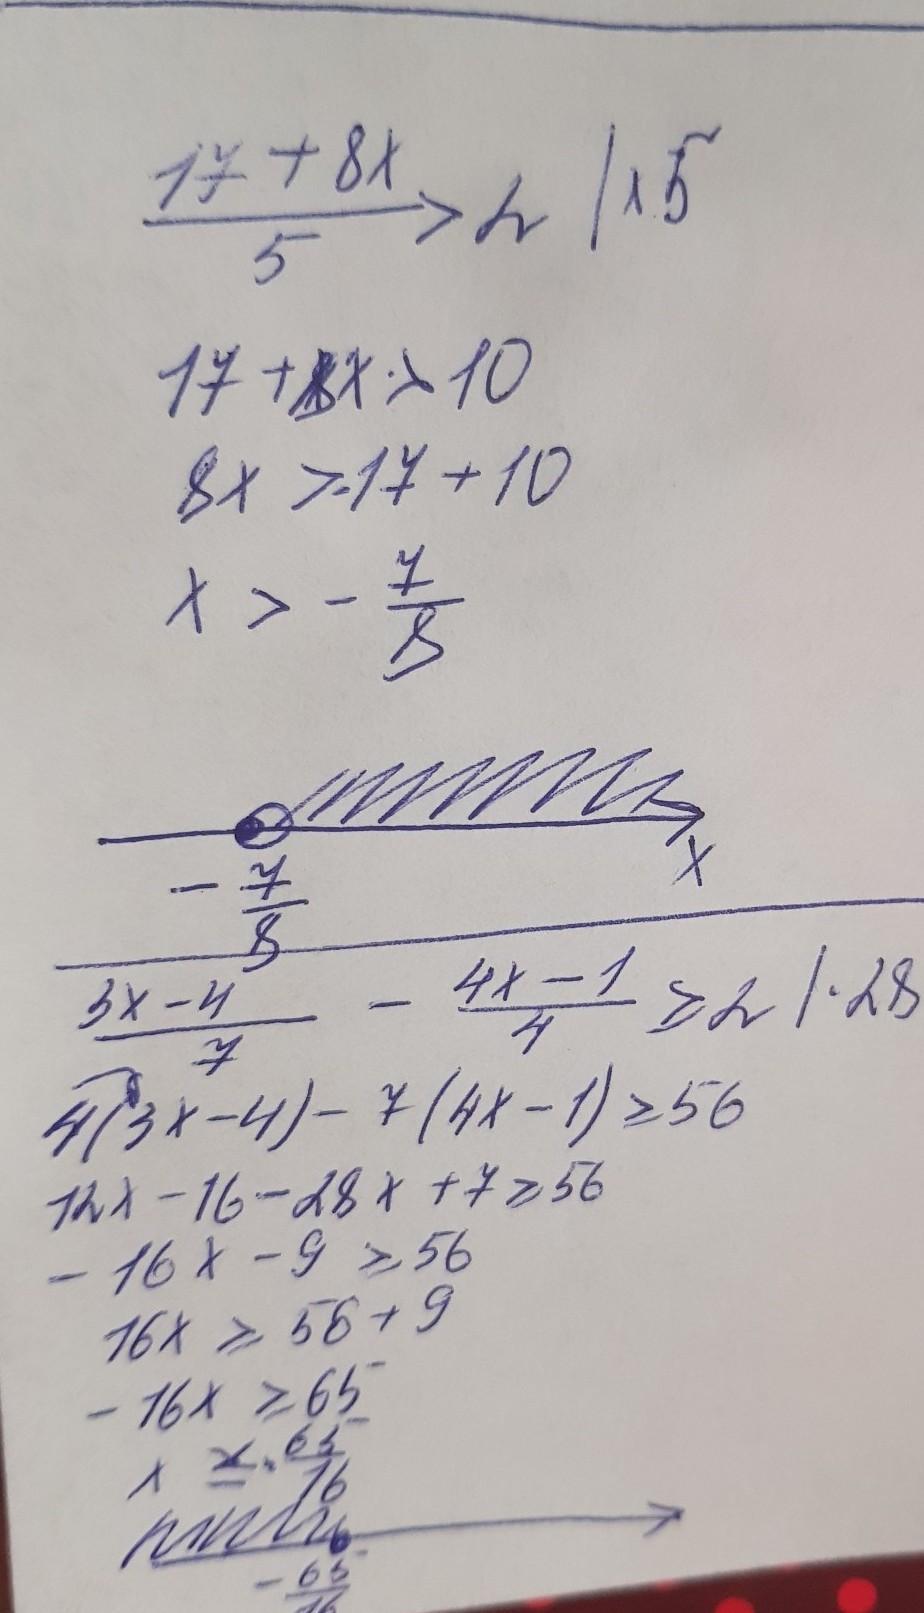 17 + 8x
5 > 2 | x 5
17 + 8x > 10
8x > -17 + 10
x > - 7/8
- 7/8 x
(3x - 4)/7 - (4x - 1)/4 ≥ 2 | · 28
4(3x - 4) - 7(4x - 1) ≥ 56
12x - 16 - 28x + 7 ≥ 56
- 16x - 9 ≥ 56
16x ≥ 56 + 9
- 16x ≥ 65
x ≤ - 65/16
- 65/16